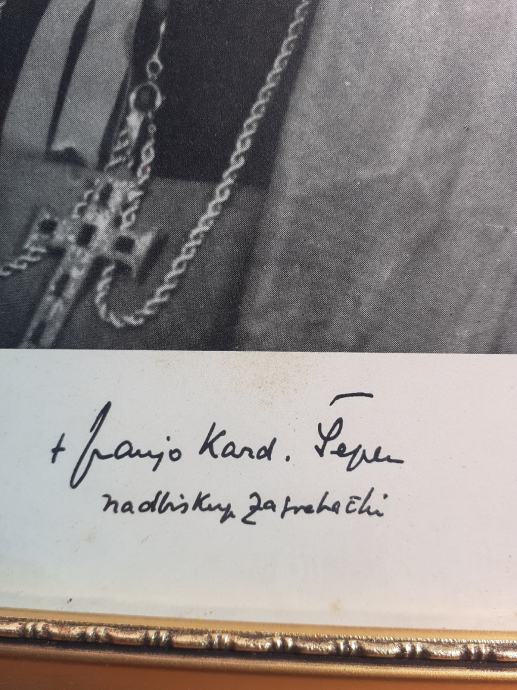 + Franjo Kard. Šeper
nadbiskup zagrebački